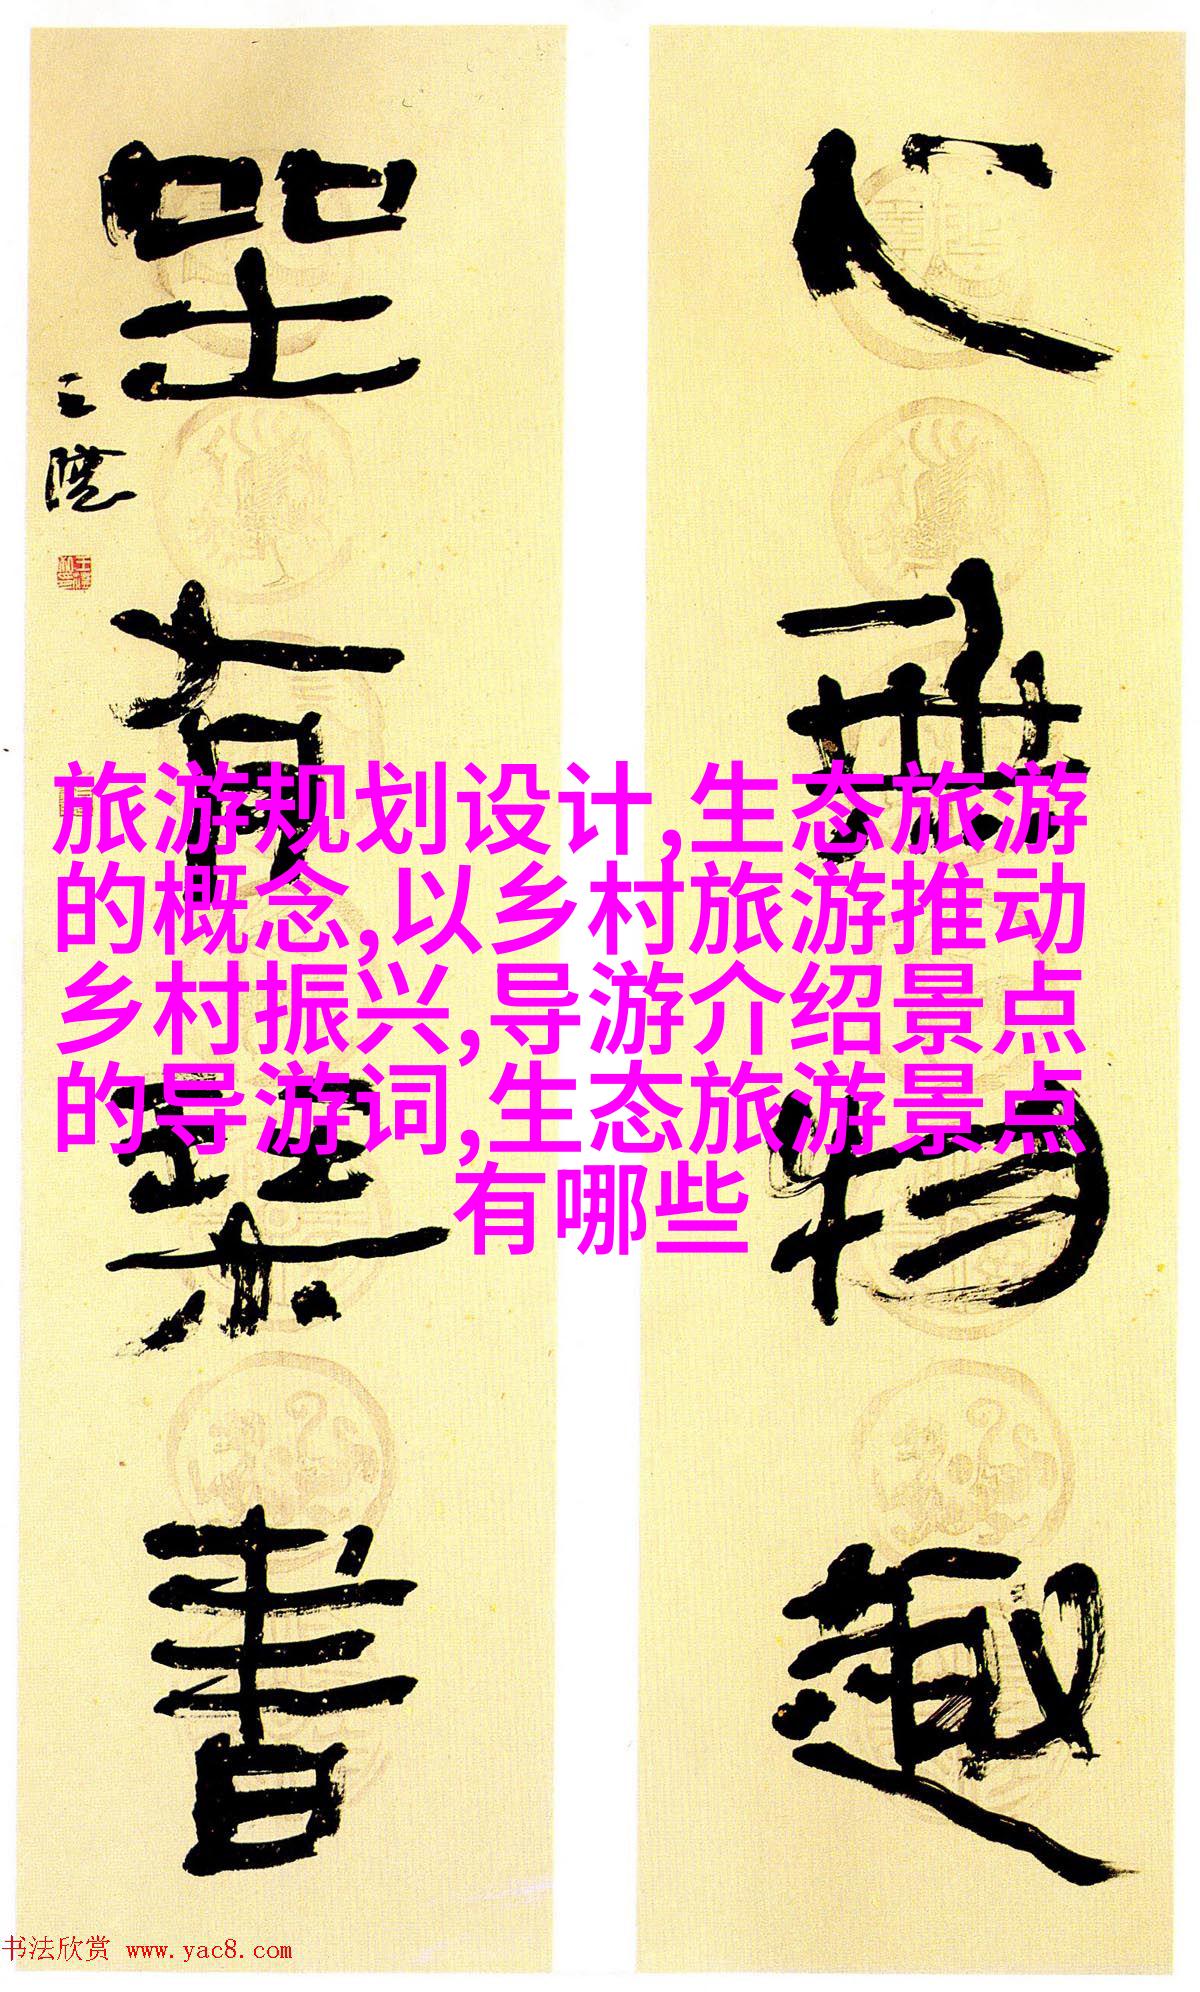 心無物趣
坐有琴書
旅游规划设计,生态旅游
的概念,以乡村旅游推动
乡村振兴,导游介绍景点
的导游词,生态旅游景点
有哪些
书法欣赏 www.yac8.com